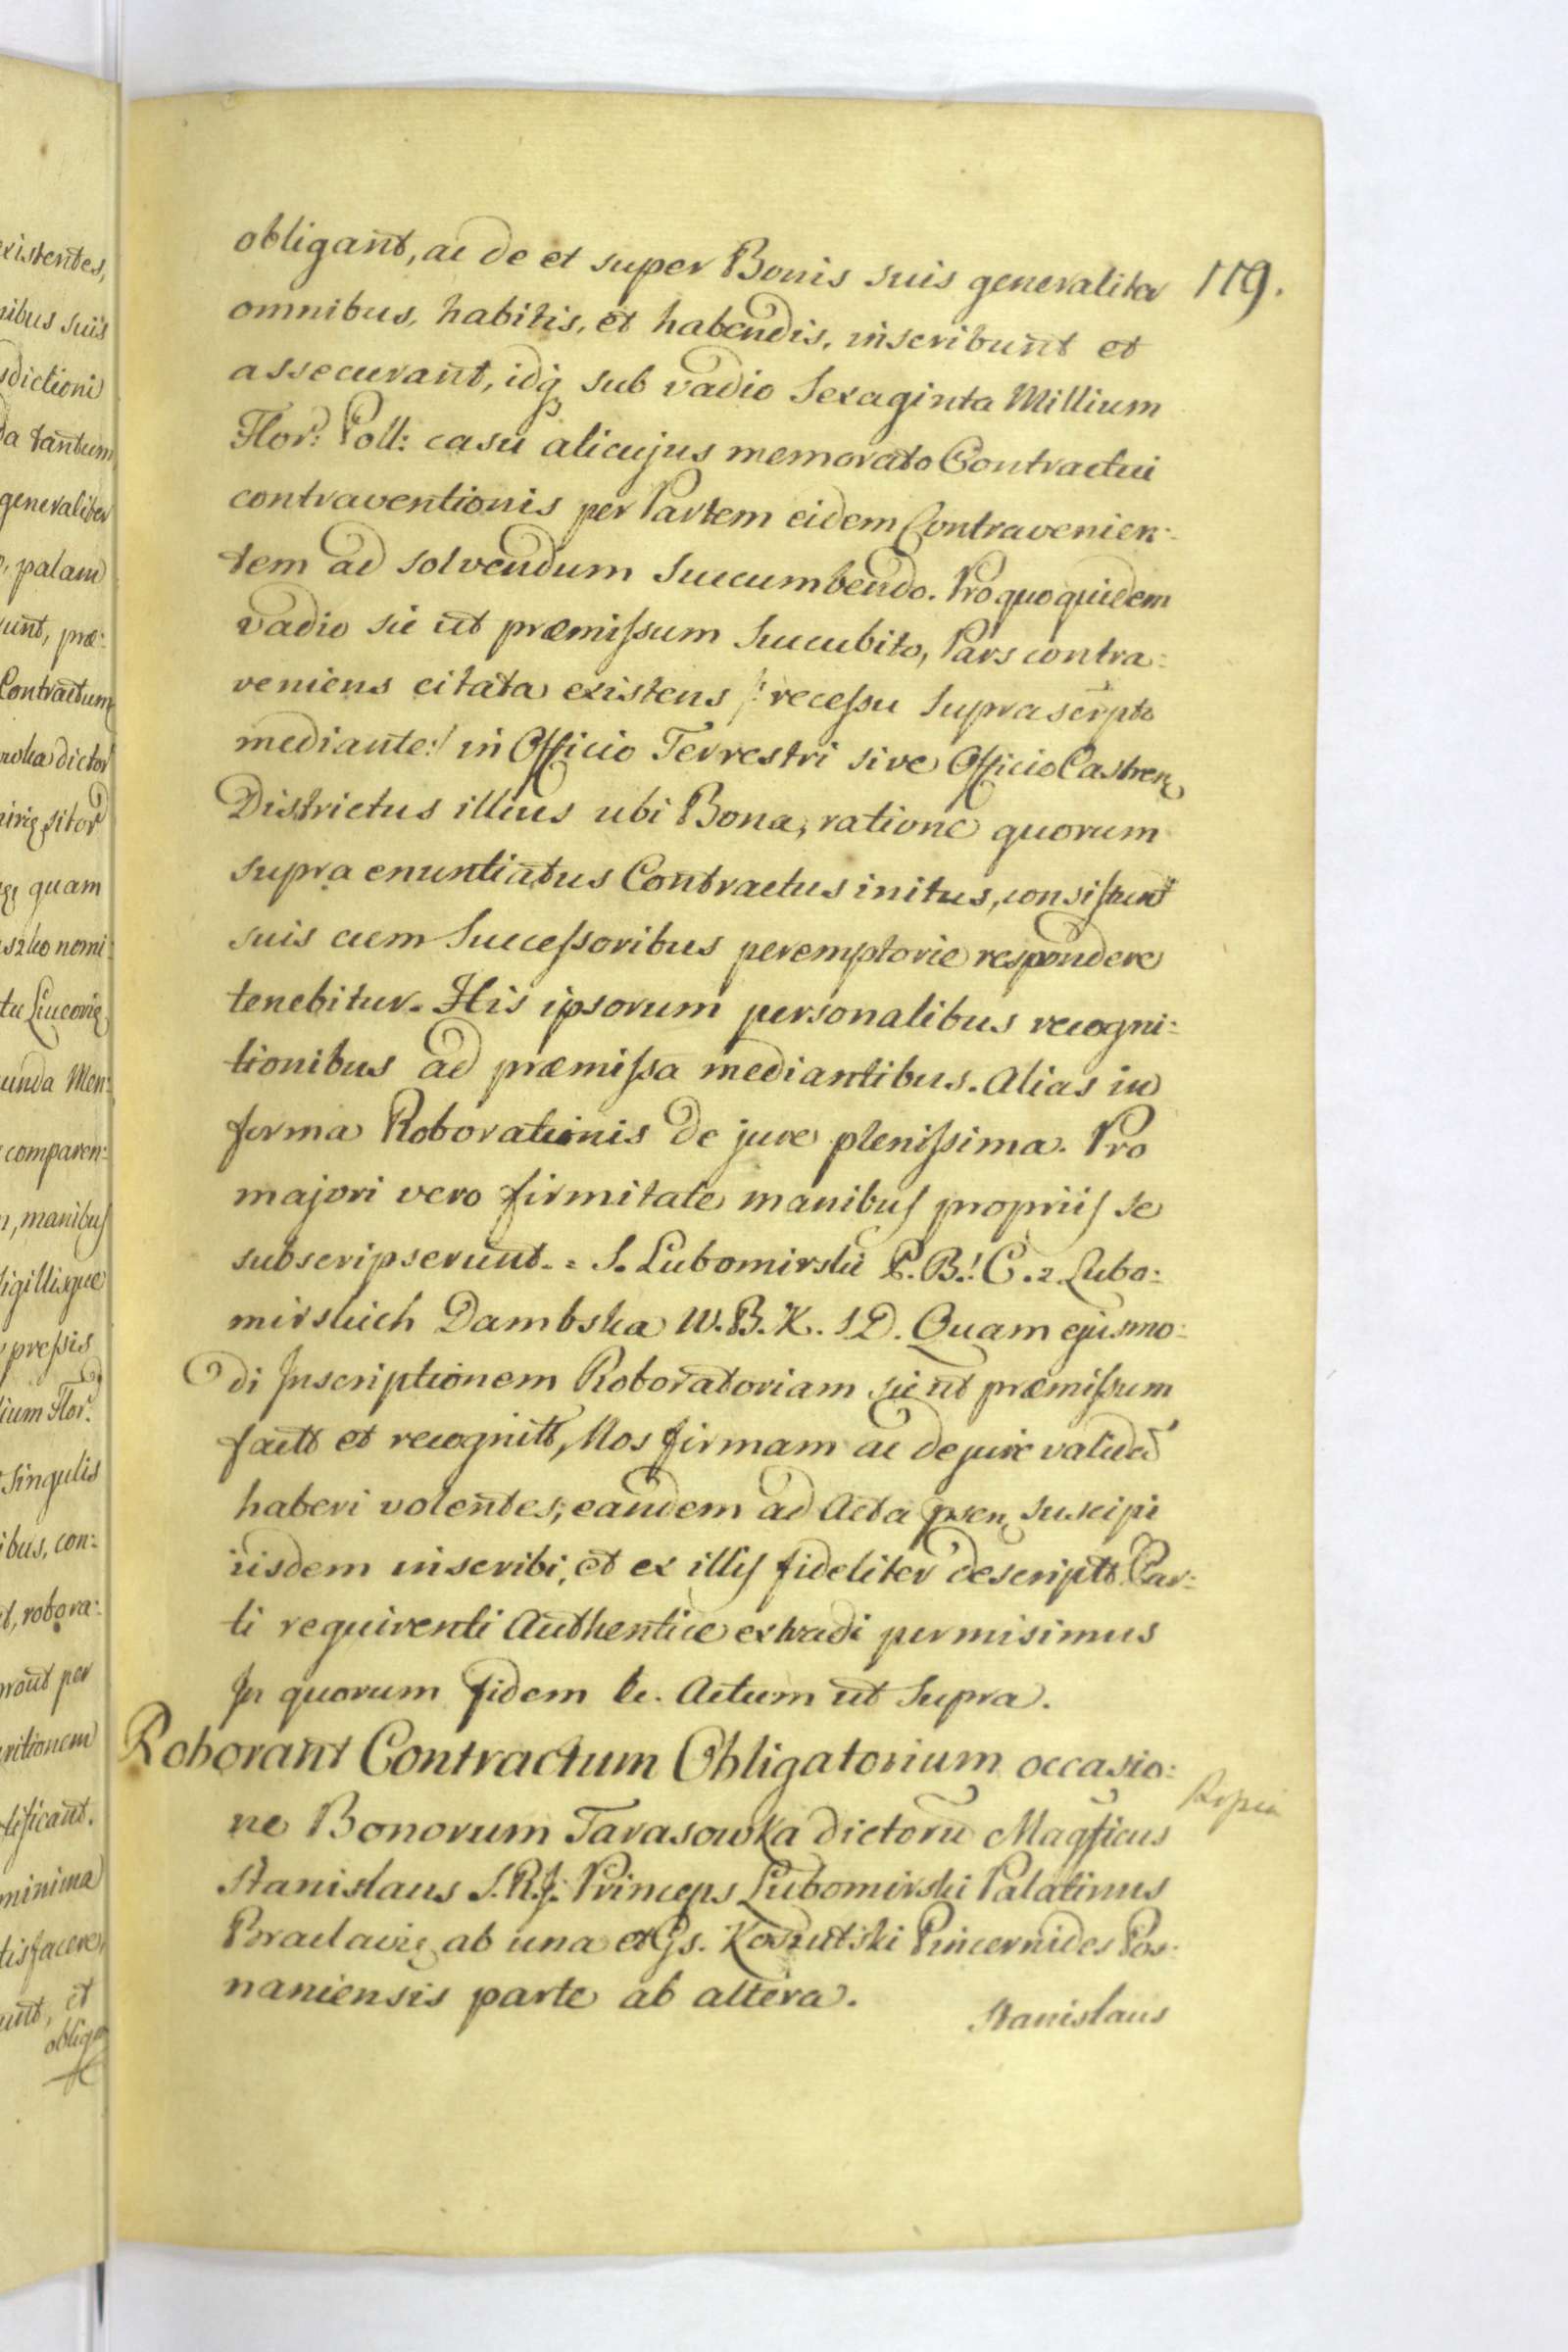 119.
obligant, ac de et super Bonis suis generaliter
omnibus, habitis, et habendis, inscribunt et
assecurant, idq sub vadio Sexaginta Millium
Flor: Poll: casu alicujus memorato Contractui
contraventionis per Partem eidem Contravenien:
tem ad solvendum succumbendo. Pro quo quidem
vadio sic ut præmissum succubito, Pars contra:
veniens citata existens /: recessu suprascripto
mediante :/ in Officio Terrestri sive Officio Castren
Districtus illius ubi Bona, ratione quorum
supra enuntiatus Contractus initus, consistunt
suis cum Successoribus peremptorie respondere
tenebitur. His ipsorum personalibus recogni:
tionibus ad præmissa mediantibus. Alias in
forma Roborationis de jure plenissima. Pro
majori vero firmitate manibus propriis se
subscripserunt. = S. Lubomirski P. B.! C. z Lubo:
mirskich Dambska W. B. K. S D. Quam ejusmo:
di Inscriptionem Roboratoriam sic ut præmissum
factt et recognitt, Nos firmam ac de jure validã
haberi volentes, eandem ad Acta psen suscipi
iisdem inscribi, et ex illis fideliter descriptt Par:
ti requirenti Authentice extradi permisimus
In quorum fidem &c. Actum ut Supra.
Roborant Contractum Obligatorium occasio:
ne Bonorum Tarasowka dictorũ Magficus
Stanislaus S. R. J. Princeps Lubomirski Palatinus
Braclaviæ ab una et Gs. Koszutski Pincernides Pos:
naniensis parte ab altera.
Stanislaus
existentes,
nibus suis
sdictioni
da tantum
generaliter
, palam
unt, præ:
Contractum
dictor
sitor
quam
nomi:
unda Men:
comparen:
, manibus
sigillisque
pressis
lium Flor:
Singulis
ibus, con:
t, robora:
per
minima
tisfacere,
unt, et